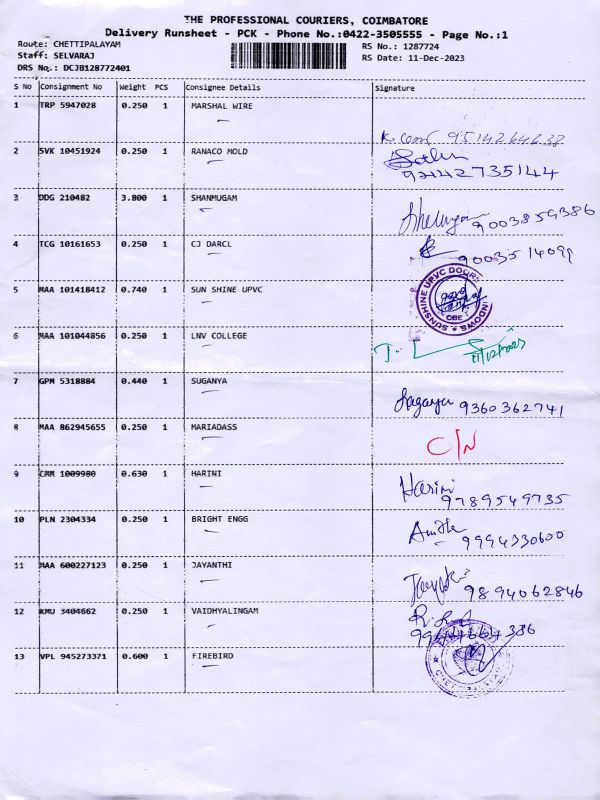 THE PROFESSIONAL COURIERS, COIMBATORE
Delivery Runsheet - PCK - Phone No.:0422-3505555 - Page No.:1
Route: CHETTIPALAYAM RS No.: 1287724
Staff: SELVARAJ RS Date: 11-Dec-2023
DRS No.: DCJB128772401
S No Consignment No Weight PCS Consignee Details Signature
1 TRP 5947028 0.250 1 MARSHAL WIRE
2 SVK 10451924 0.250 1 RANACO MOLD
92142735144
3 DDG 210482 3.800 1 SHANMUGAM
9003859386
4 TCG 10161653 0.250 1 CJ DARCL
5 MAA 101418412 0.740 1 SUN SHINE UPVC
SUNSHINE UPVC DOORS
CBE
6 MAA 101044856 0.250 1 LNV COLLEGE
7 GPM 5318884 0.440 1 SUGANYA
9360362741
8 MAA 862945655 0.250 1 MARIADASS
C/N
9 CMM 1009980 0.630 1 HARINI
Harini
9789549735
10 PLN 2304334 0.250 1 BRIGHT ENGG
9994330600
11 MAA 600227123 0.250 1 JAYANTHI
9894062846
12 KMU 3404662 0.250 1 VAIDHYALINGAM
13 VPL 945273371 0.600 1 FIREBIRD